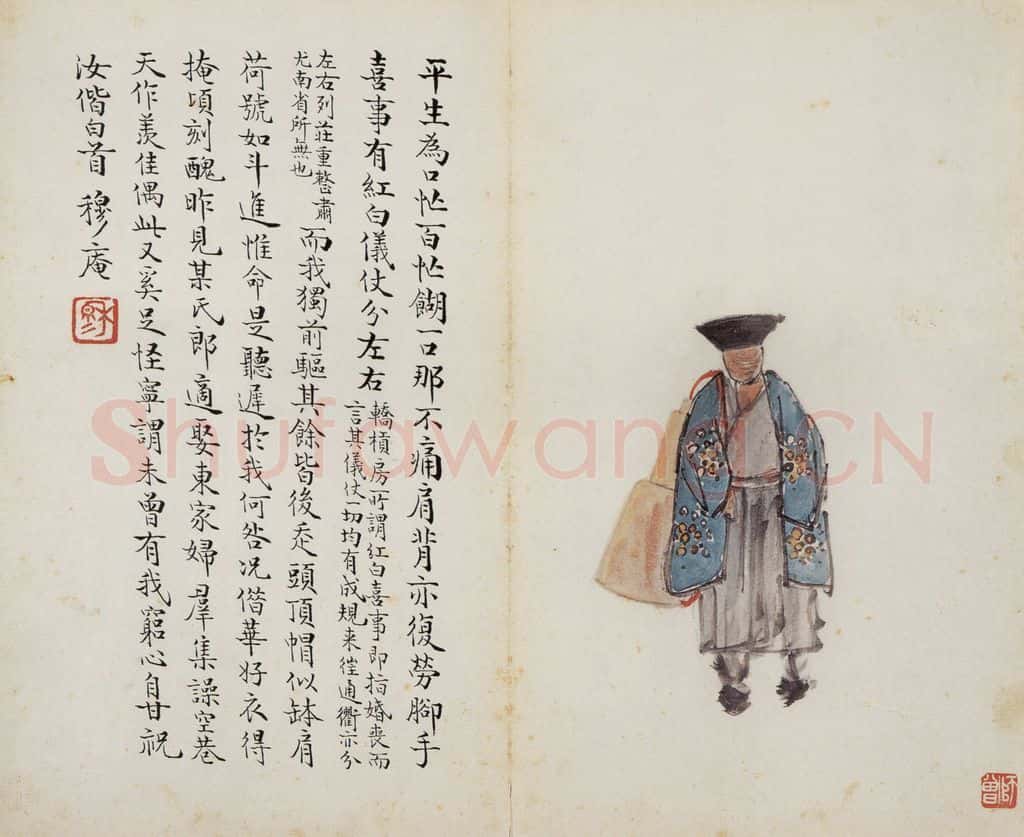 平生為口忙百忙餬一口那不痛肩背亦復勞腳手
喜事有紅白儀仗分左右
轎槓房所謂紅白喜事即指婚喪而
言其儀仗一切均有成規来徃通衢亦分
左右列莊重整肅
尤南省所無也
而我獨前驅其餘皆後走頭頂帽似缽肩
荷號如斗進惟命是聽遲於我何咎况偕華好衣得
掩頃刻醜昨見某氏郎適娶東家婦羣集譟空巷
天作羨佳偶此又奚足怪寧謂未曾有我窮心自甘祝
汝偕白首 穆庵
師曾
Shufawang.CN